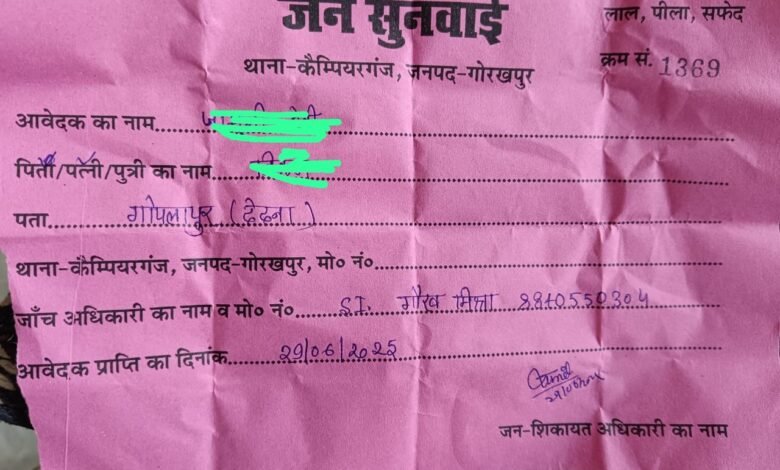 जन सुनवाई
लाल, पीला, सफेद
थाना-कैम्पियरगंज, जनपद-गोरखपुर
क्रम सं. 1369
आवेदक का नाम
पिता/पत्नी/पुत्री का नाम
पता गोपलापुर (ढेढना)
थाना-कैम्पियरगंज, जनपद-गोरखपुर, मो० नं०
जाँच अधिकारी का नाम व मो० नं० S.I. गौरव मिश्रा 8840550304
आवेदक प्राप्ति का दिनांक 29/06/2025
जन-शिकायत अधिकारी का नाम